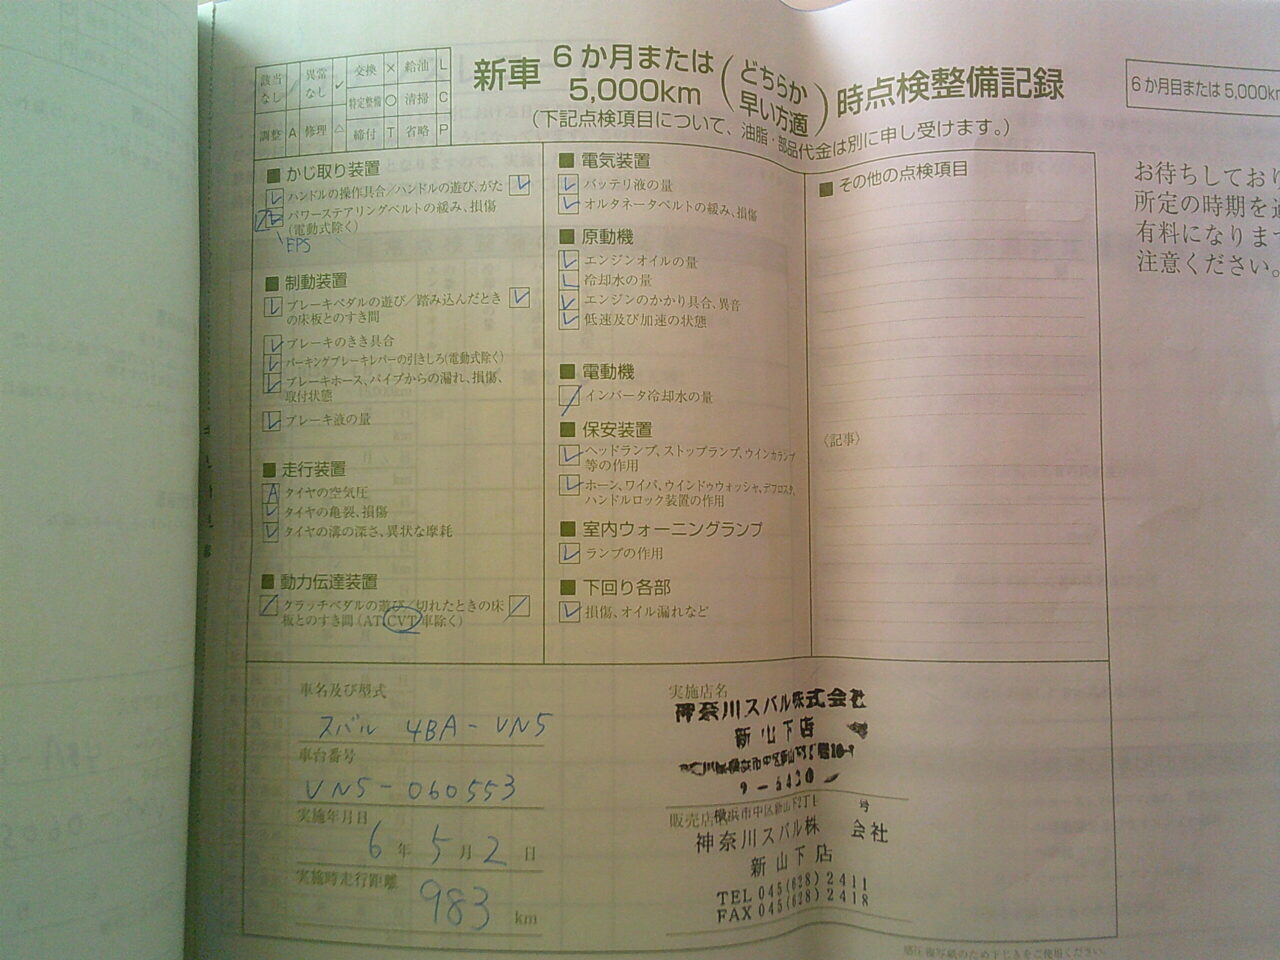 該当なし / 異常なし ✓ 交換 × 給油 L
特定整備 ○ 清掃 C
調整 A 修理 △ 締付 T 省略 P
新車 6か月または5,000km(どちらか早い方適)時点検整備記録
(下記点検項目について、油脂・部品代金は別に申し受けます。)
■ かじ取り装置
ハンドルの操作具合/ハンドルの遊び、がた
パワーステアリングベルトの緩み、損傷
(電動式除く)
EPS
■ 制動装置
ブレーキペダルの遊び/踏み込んだとき
の床板とのすき間
ブレーキのきき具合
パーキングブレーキレバーの引きしろ(電動式除く)
ブレーキホース、パイプからの漏れ、損傷、
取付状態
ブレーキ液の量
■ 走行装置
A タイヤの空気圧
タイヤの亀裂、損傷
タイヤの溝の深さ、異状な摩耗
■ 動力伝達装置
クラッチペダルの遊び/切れたときの床
板とのすき間(AT,CVT車除く)
■ 電気装置
バッテリ液の量
オルタネータベルトの緩み、損傷
■ 原動機
エンジンオイルの量
冷却水の量
エンジンのかかり具合、異音
低速及び加速の状態
■ 電動機
インバータ冷却水の量
■ 保安装置
ヘッドランプ、ストップランプ、ウインカランプ
等の作用
ホーン、ワイパ、ウインドゥウォッシャ、デフロスタ、
ハンドルロック装置の作用
■ 室内ウォーニングランプ
ランプの作用
■ 下回り各部
損傷、オイル漏れなど
■ その他の点検項目
〈記事〉
車名及び型式
スバル 4BA-VN5
車台番号
VN5-060553
実施年月日
6年5月2日
実施時走行距離
983 km
実施店名
神奈川スバル株式会社
新山下店
販売店
神奈川スバル株 会社
新山下店
TEL 045(628)2411
FAX 045(628)2418
6か月目または5,000km
お待ちしており
所定の時期を
有料になりま
注意ください。